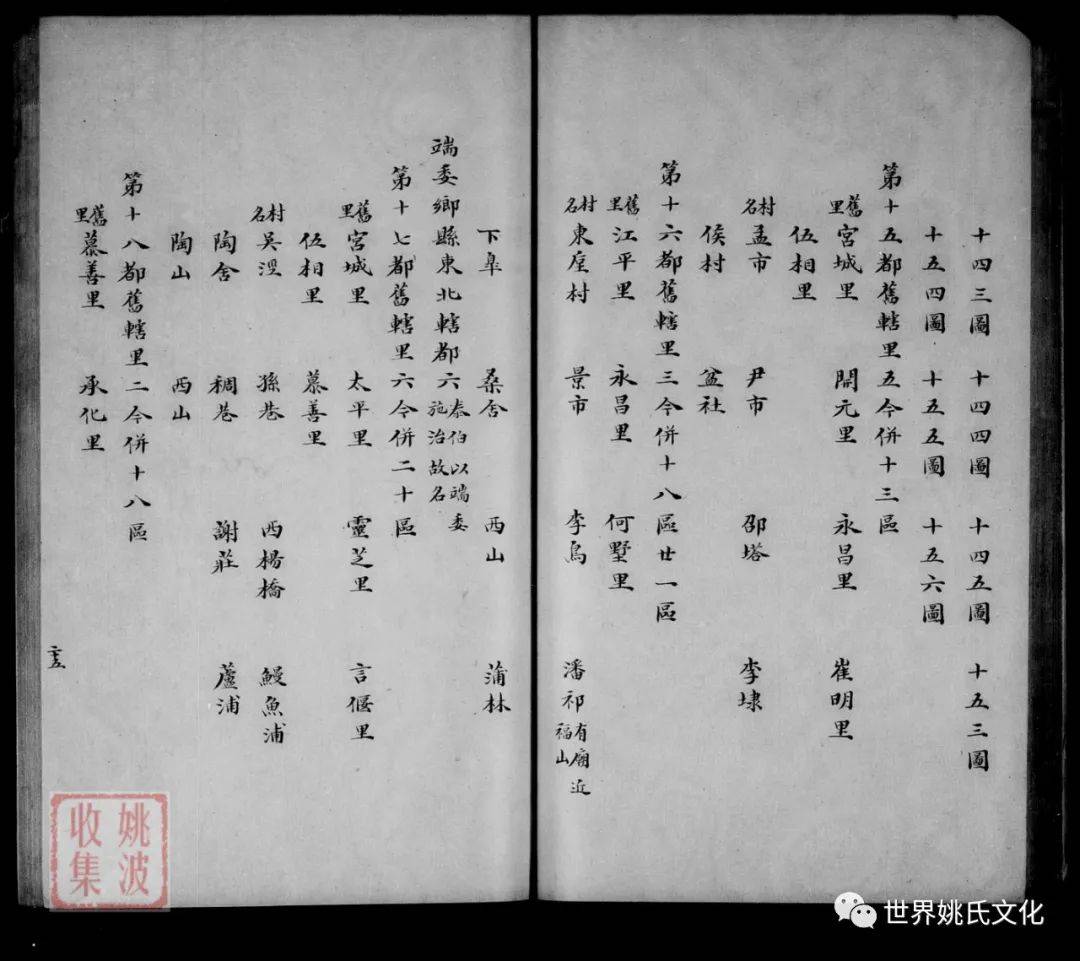 十四三圖 十四四圖 十四五圖 十五三圖
十五四圖 十五五圖 十五六圖
第十五都舊轄里五今併十三區
舊里 宮城里 開元里 永昌里 崔明里
伍相里
村名 孟市 尹市 邵塔 李埭
侯村 盆社
第十六都舊轄里三今併十八區廿一區
舊里 江平里 永昌里 何墅里
村名 東庄村 景市 李烏 潘祁 有廟近福山
下臯 桑舍 西山 蒲林
端委鄉縣東北轄都六 泰伯以端委施治故名
第十七都舊轄里六今併二十區
舊里 宮城里 太平里 靈芝里 言偃里
伍相里 慕善里
村名 吳涇 孫巷 西楊橋 鰻魚浦
陶舍 稠巷 謝莊 蘆浦
陶山 西山
第十八都舊轄里二今併十八區
舊里 慕善里 承化里
二十五
姚波收集
世界姚氏文化